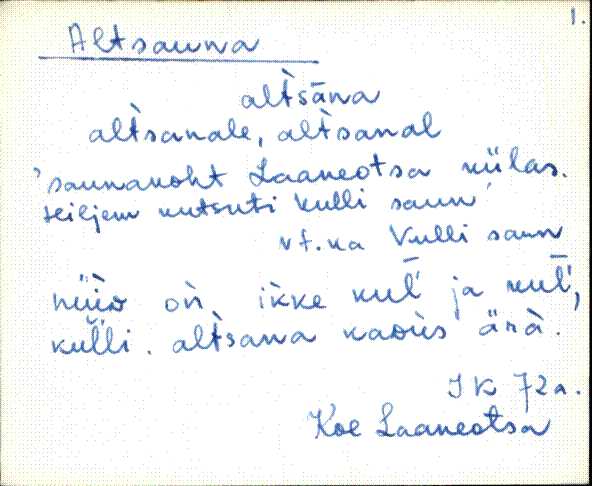 1.
Altsauna
alt̀sāna
alt̀sanale, alt̀sanal
'saunakoht Laaneotsa külas.
Hiljem kutsuti Kulli saun'
vt. ka Kulli saun
on ikke kul̄' ja kul̄',
kul'li. alt̀sana kaoùs ärà.
J K 72 a.
Koe Laaneotsa